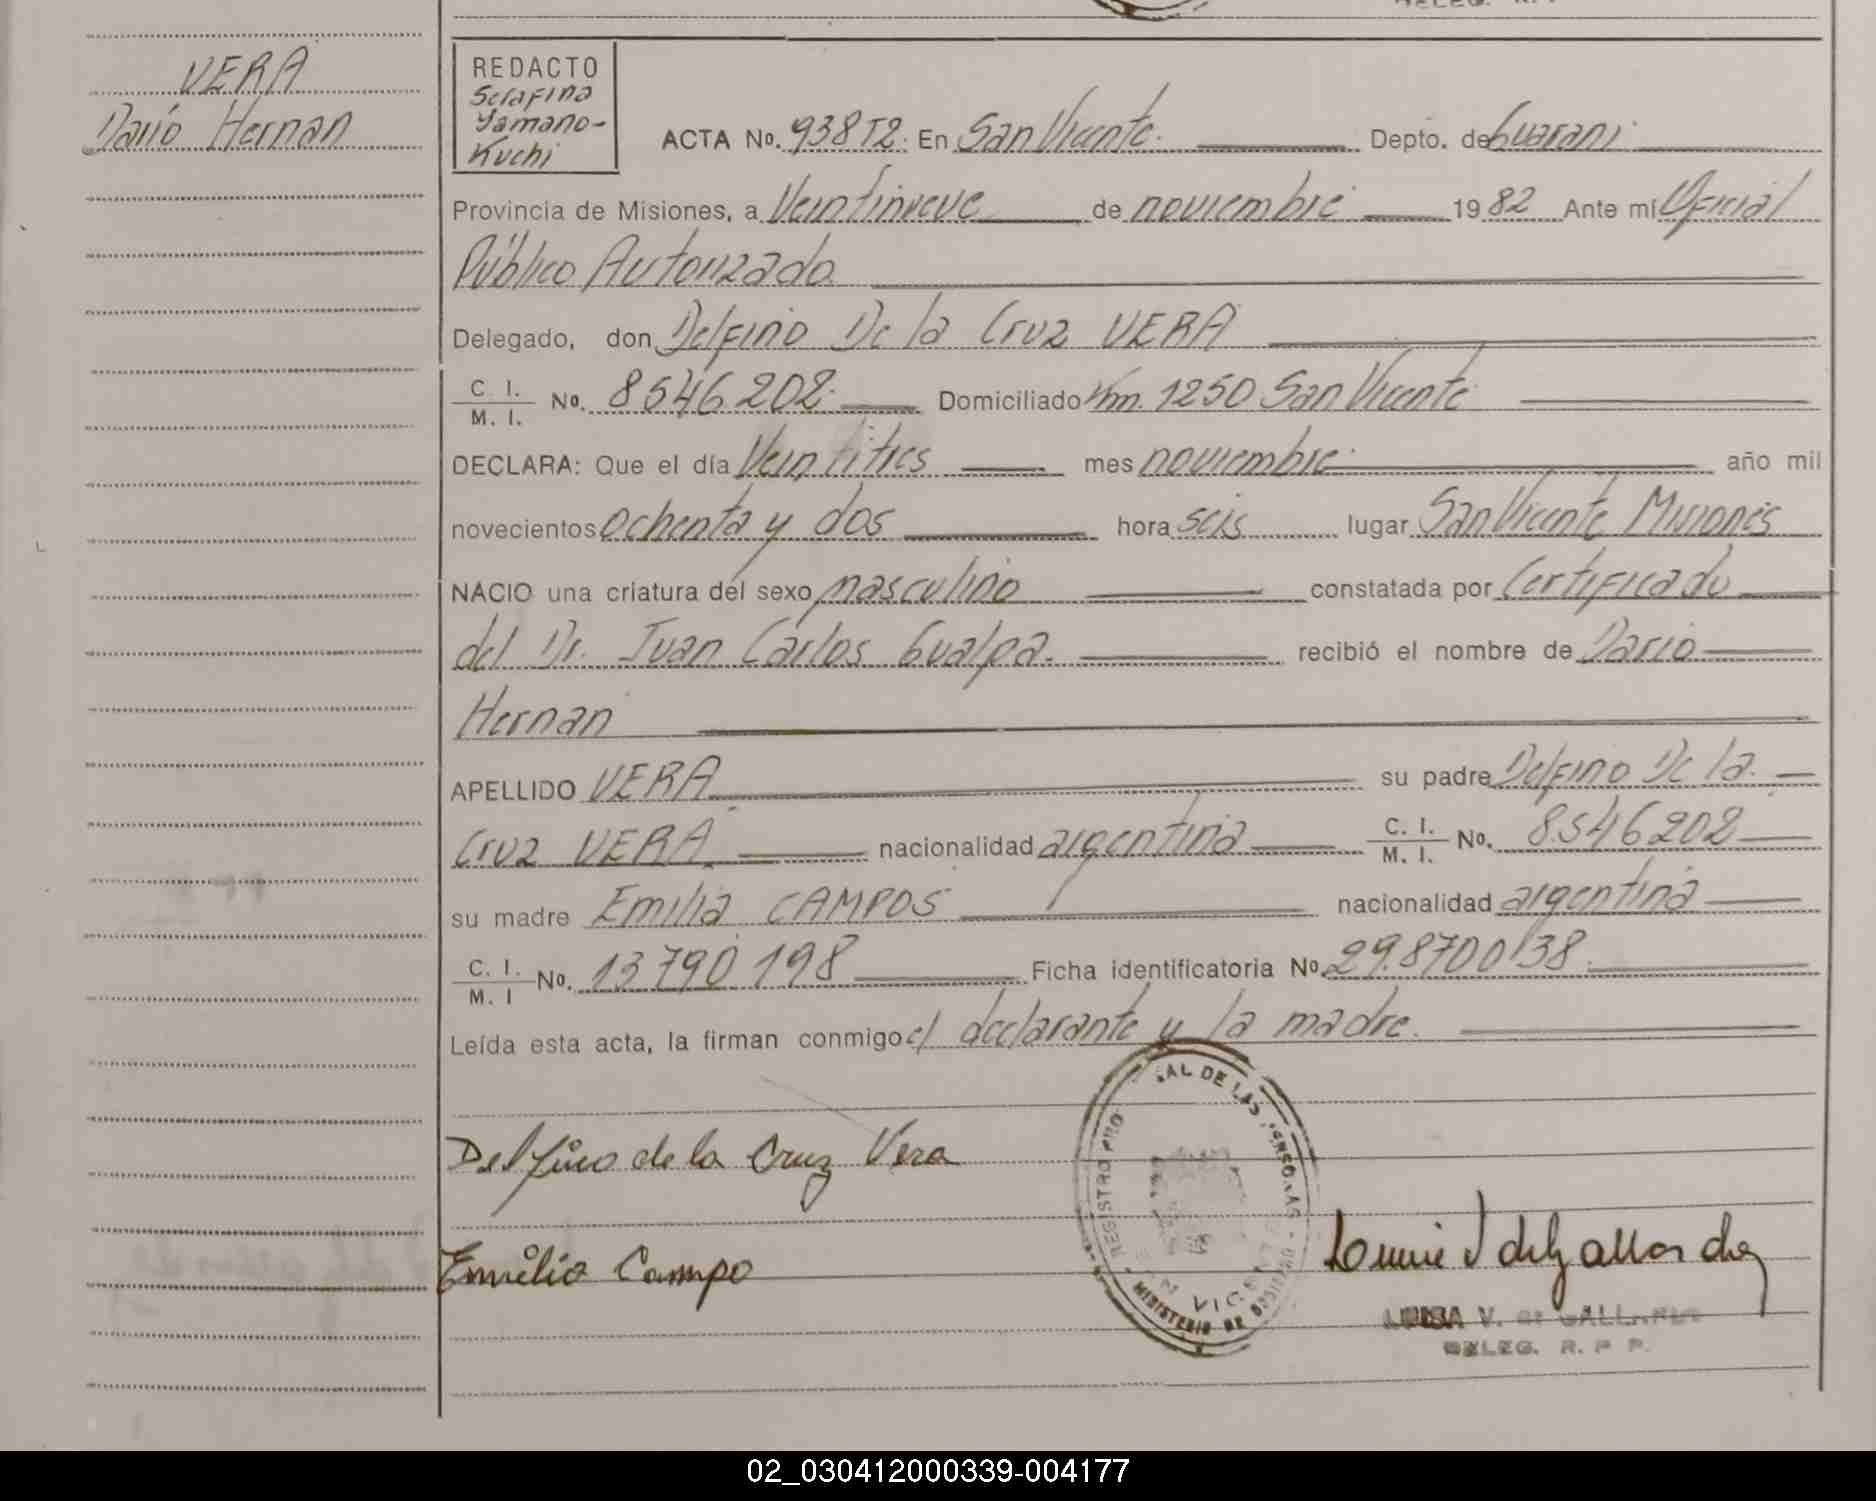 DELEG. R. P.
VERA
Darío Hernan
REDACTO
Serafina
Yamano-
Kuchi
ACTA No. 938T2. En San Vicente. Depto. de Guarani
Provincia de Misiones, a Veintinueve de noviembre 1982 Ante mí Oficial
Público Autorizado
Delegado, don Delfino De la Cruz VERA
C. I.
M. I. No. 8546202. Domiciliado Km. 1250 San Vicente
DECLARA: Que el día Veintitres mes noviembre año mil
novecientos ochenta y dos hora seis lugar San Vicente Misiones
NACIO una criatura del sexo masculino constatada por Certificado
del Dr. Juan Carlos Gualpa. recibió el nombre de Dario
Hernan
APELLIDO VERA su padre Delfino De la
Cruz VERA nacionalidad argentina C. I.
M. I. No. 8.546202
su madre Emilia CAMPOS nacionalidad argentina
C. I.
M. I No. 13790198 Ficha identificatoria No. 29.870.038
Leída esta acta, la firman conmigo el declarante y la madre.
REGISTRO PRO AL DE LAS PERSONAS
MINISTERIO DE
Delfino de la Cruz Vera
Emilia Campo
LUISA V. de GALLARDO
DELEG. R. P P.
02_030412000339-004177